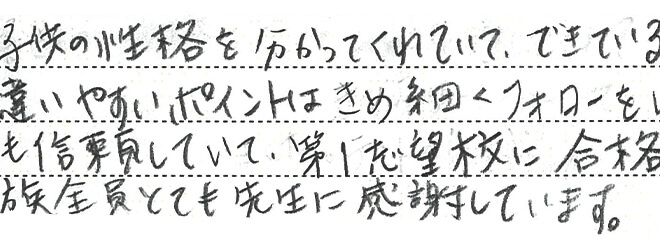 子供の性格を分かってくれていて、できている
違いやすいポイントはきめ細かくフォローをし
も信頼していて、第1志望校に合格
族全員とても先生に感謝しています。